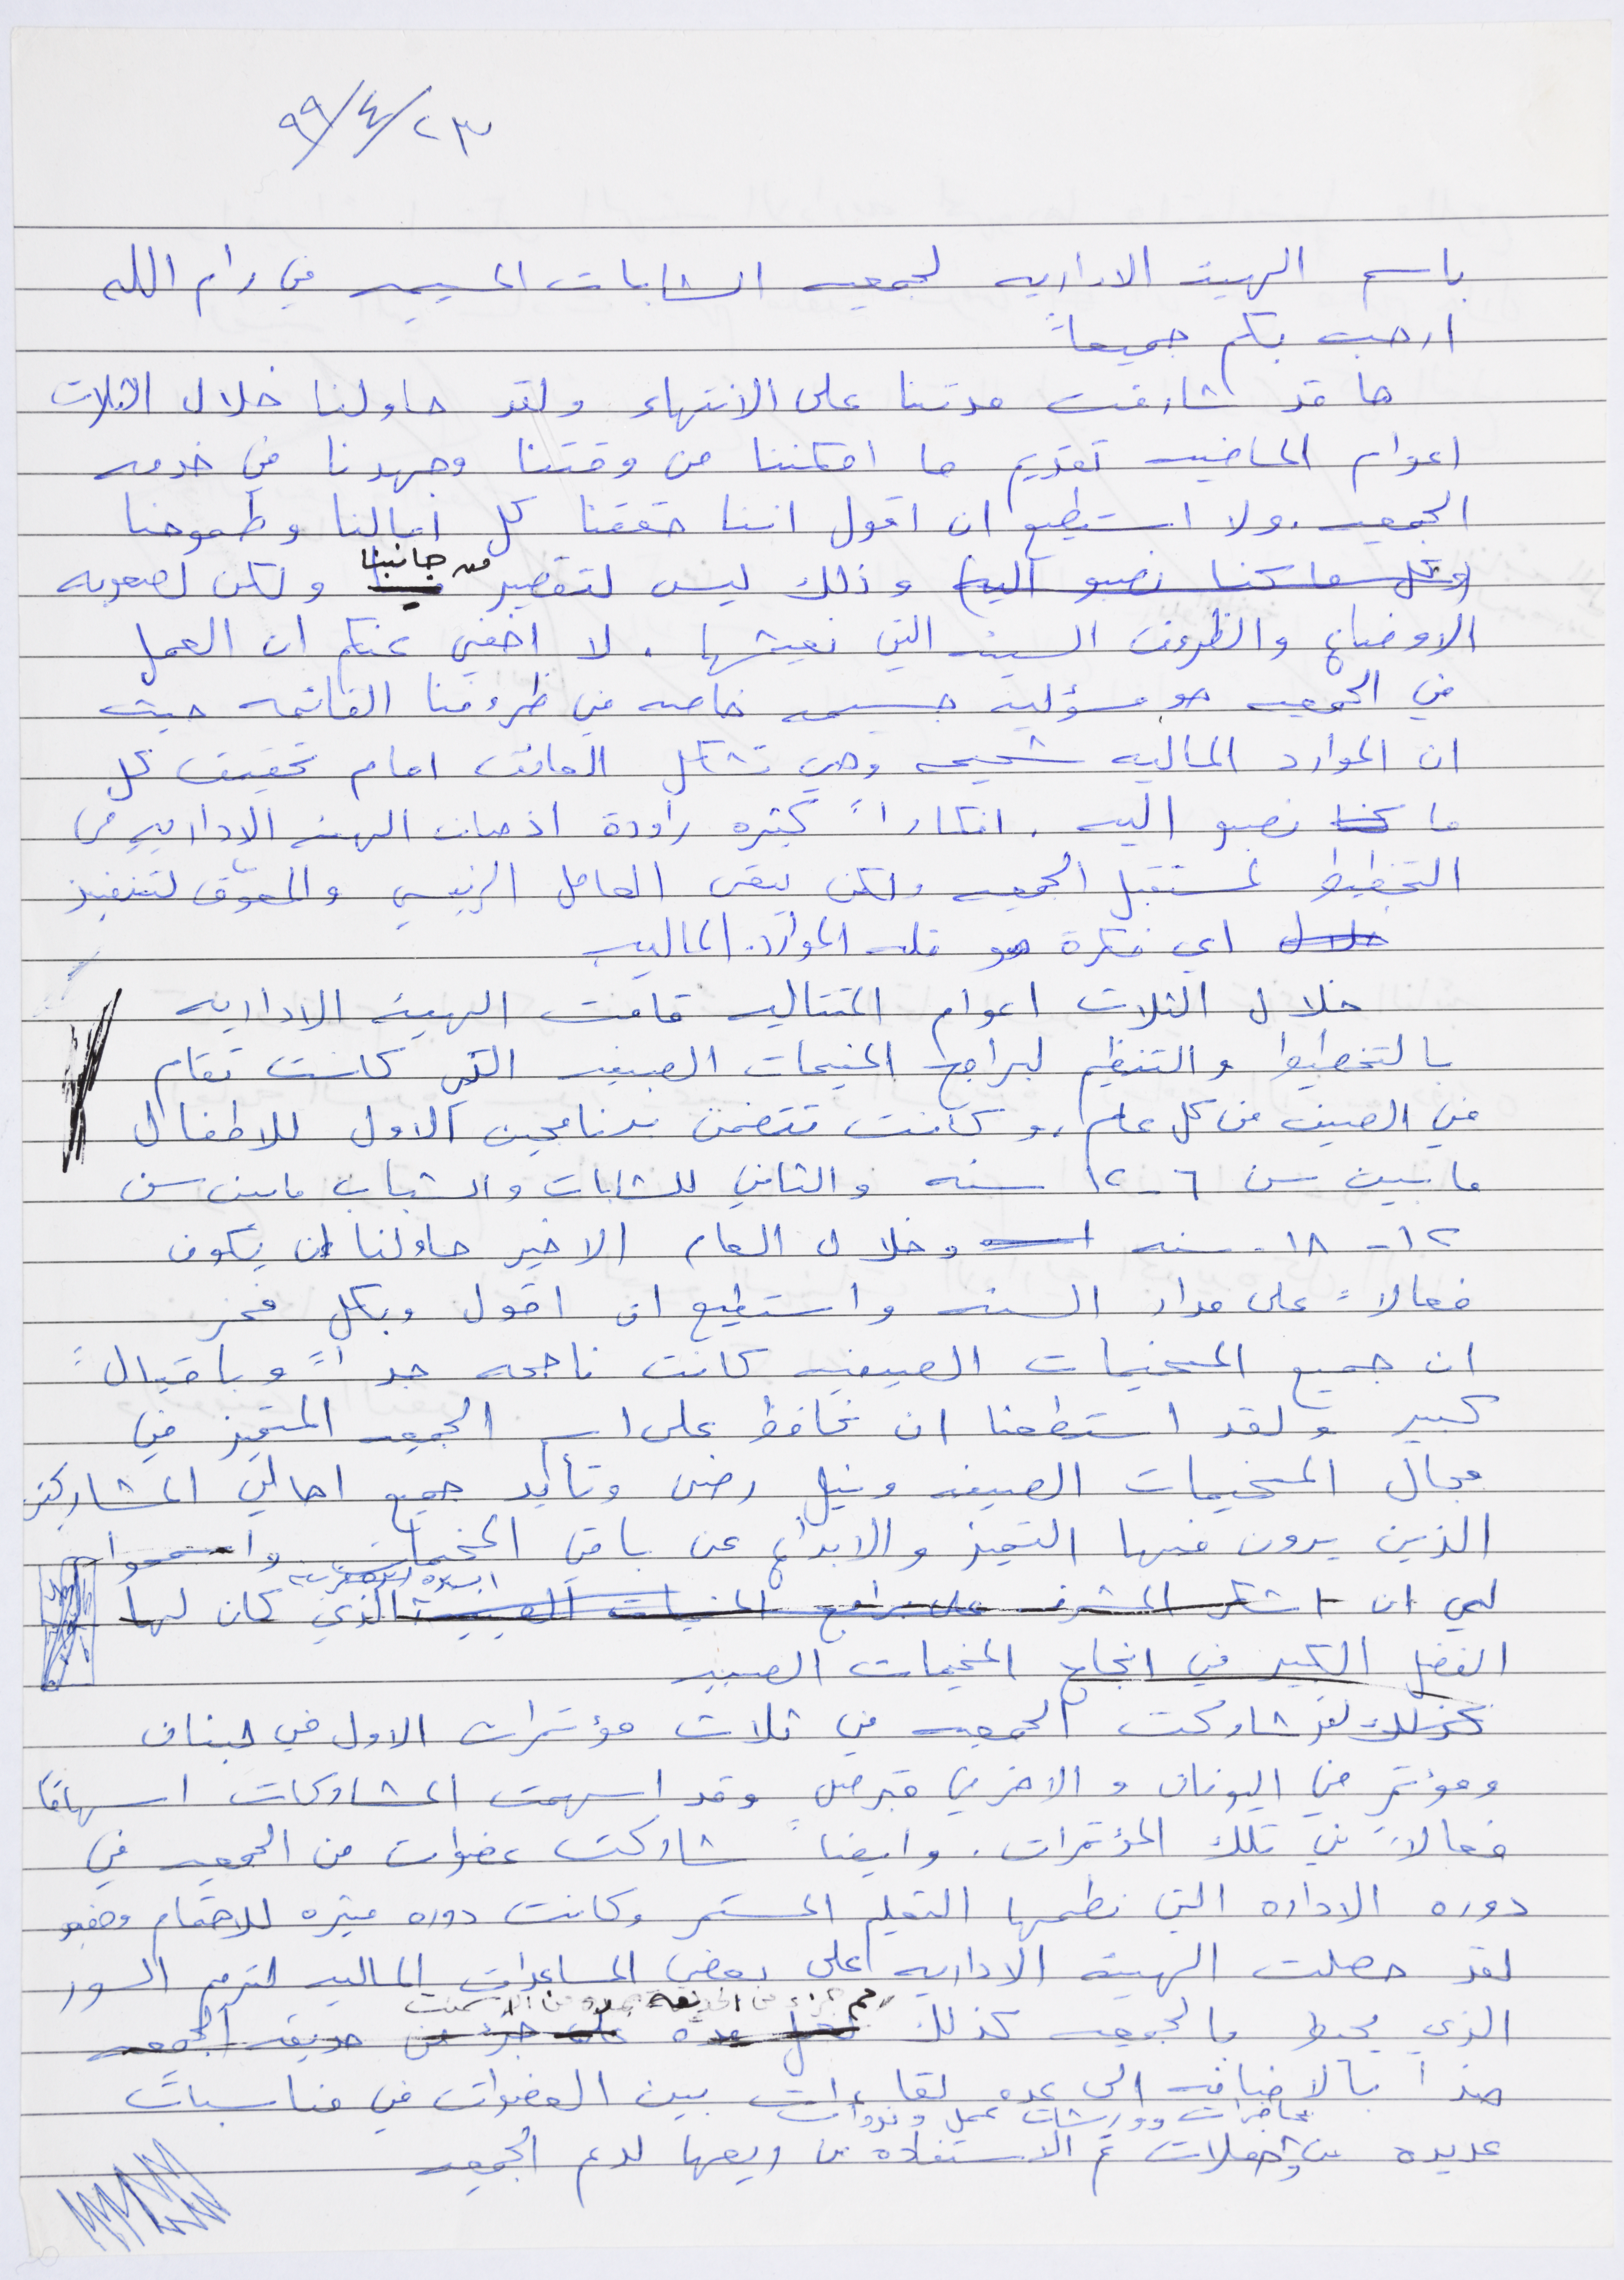 ٢٣/٤/٩٩
باسم الهيئة الاداريه لجمعيه الشابات المسيحيه في رام الله
ارحب بكم جميعاً
ها قد شارفت مدتنا على الانتهاء ولقد حاولنا خلال الثلاث
اعوام الماضيه تقديم ما امكننا من وقتنا وجهدنا في خدمه
الجمعيه. ولا استطيع ان اقول اننا حققنا كل امالنا وطموحنا
(وكل ما كنا نصبو اليه) وذلك ليس لتقصير من جانبنا ولكن لصعوبه
الاوضاع والظروف السيئه التي نعيشها. لا اخفي عنكم ان العمل
في الجمعيه هو مسؤليه جسيمه خاصه في ظروفنا القائمه حيث
ان الموارد الماليه شحيحه وهي تشكل العائق امام تحقيق كل
ما كنا نصبو اليه. افكاراً كثيره راودة اذهان الهيئه الاداريه في
التخطيط لمستقبل الجمعيه ولكن يبقى العامل الرئيسي والمعوّق لتنفيذ
خلال اي فكرة هو قله الموارد الماليه
خلال الثلاث اعوام المتتاليه قامت الهيئة الاداريه
بالتخطيط والتنظيم لبرامج المخيمات الصيفيه التي كانت تقام
في الصيف من كل عام، وكانت تتضمن برنامجين الاول للاطفال
ما بين سن ٦-١٢ سنه والثاني للشابات والشباب ما بين سن
١٢-١٨ سنه وخلال العام الاخير حاولنا ان يكون
فعالاً على مدار السنه واستطيع ان اقول وبكل فخر
ان جميع المخيمات الصيفيه كانت ناجحه جداً وباقبالً
كبير ولقد استطعنا ان نحافظ على اسم الجمعيه المتميز في
مجال المخيمات الصيفيه ونيل رضى وتأيد جميع اهالي المشاركين
الذين يرون فيها التميز والابداع عن باقي المخيمات واسمحوا
لي ان اشكر المشرفه على برامج المخيمات الصيفيه الذي كان لها
الفضل الكبير في انجاح المخيمات الصيفيه
كذلك لقد شاركت الجمعيه في ثلاث مؤتمرات الاول في لبنان
ومؤتمر في اليونان والاخر في قبرص وقد اسهمت المشاركات اسهاماً
فعالاً في تلك المؤتمرات. وايضاً شاركت عضوات من الجمعيه في
دوره الاداره التي نظمها التعليم المستمر وكانت دوره مثيره للاهتمام ومفيده
لقد حصلت الهيئه الاداريه على بعض المساعدات الماليه لترميم السور
الذي يحيط بالجمعيه كذلك جزء من حديقه الجمعيه
هذا بالاضافه الى عده لقاءات بين العضوات في مناسباتً
محاضرات وورشات عمل وندوات
عديده من حفلات تم الاستفاده من ريعها لدعم الجمعيه